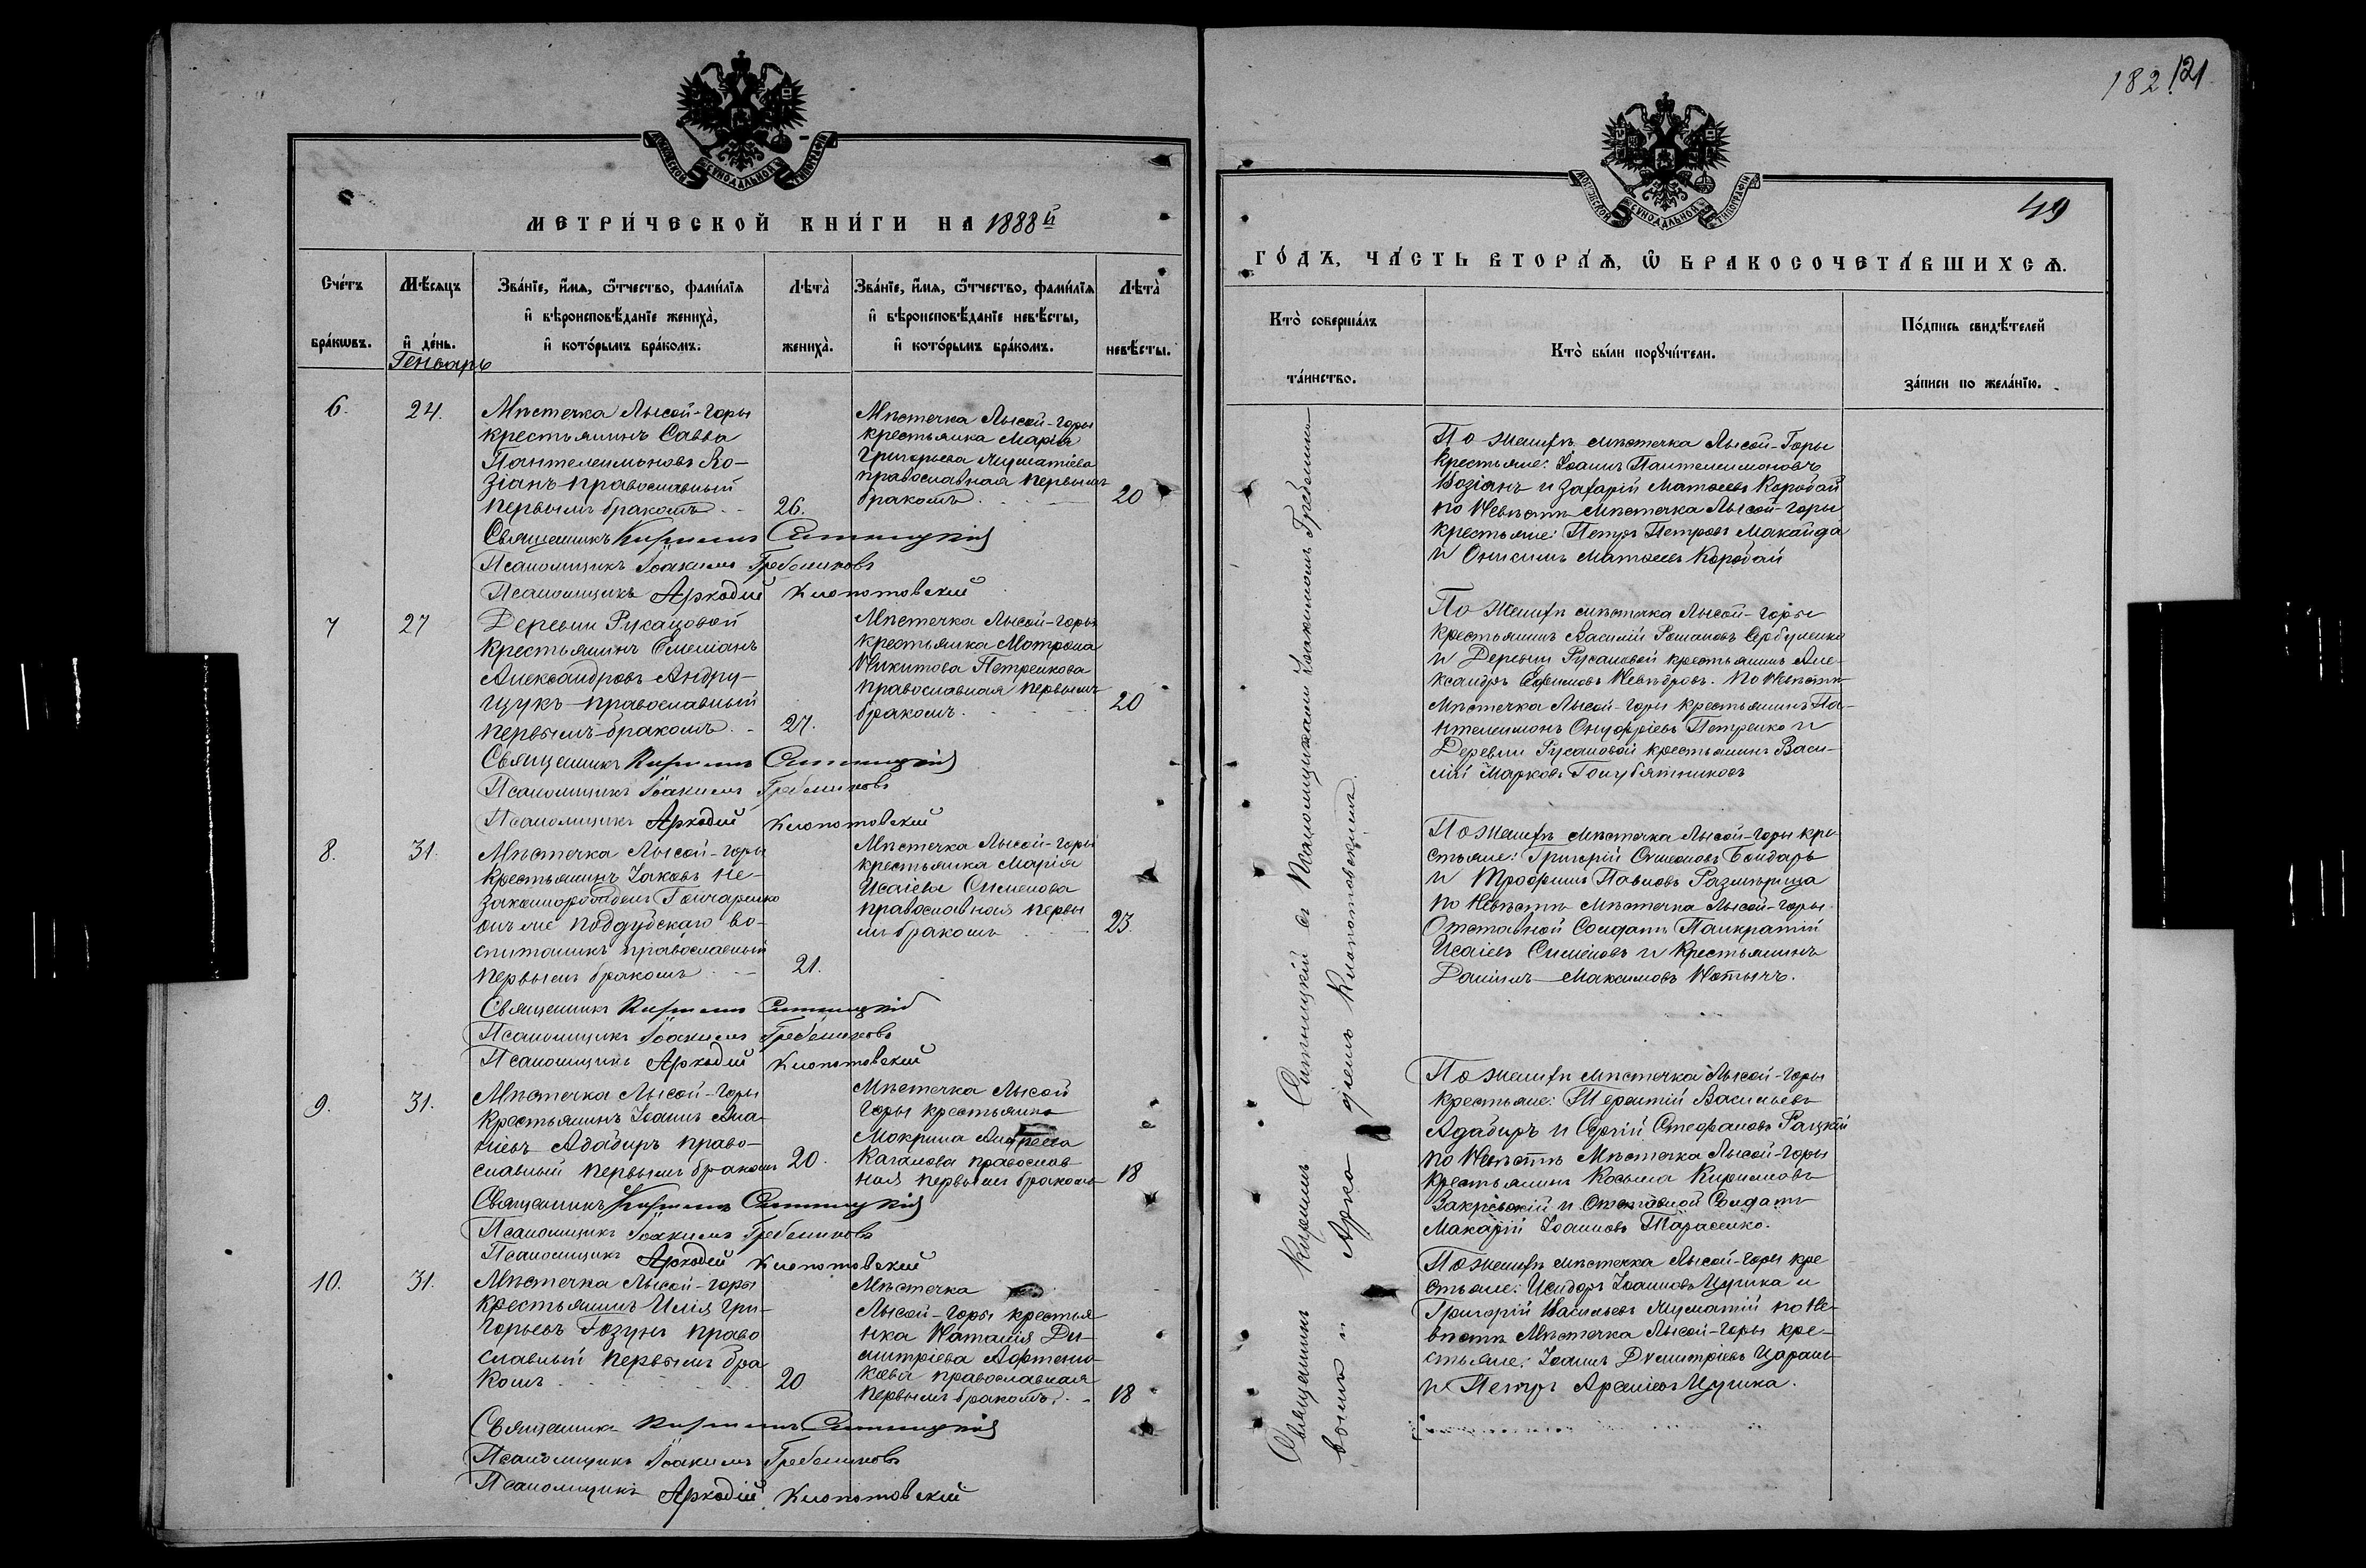 МЕТРИ́ЧЕСКОЙ КНИ́ГИ НА 1888 й
Сче́тъ бра́кѡвъ.
Мѣ́сяцъ и҆ де́нь.
Зва́нїе, и҆́мѧ, ѻ҆́тчество, фами́лїѧ
и҆ вѣроисповѣ́данїе жениха̀,
и҆ кото́рымъ бра́комъ.
Лѣта̀ жениха̀.
Зва́нїе, и҆́мѧ, ѻ҆́тчество, фами́лїѧ
и҆ вѣроисповѣ́данїе невѣ́сты,
и҆ кото́рымъ бра́комъ.
Лѣта̀ невѣ́сты.
Генварь
6.
24.
Мѣстечка Лысой-горы
крестьянинъ Савва
Пантелеимоновъ Ко-
зіанъ православный
первымъ бракомъ
26.
Мѣстечка Лысой-горы
крестьянка Марія
Григорьева
православная первымъ
бракомъ
20
Священникъ Кириллъ Ситницкій
Псаломщикъ Іоакимъ Гребениковъ
Псаломщикъ Аркадій Клопотовскій
7
27
Деревни Русаловой
крестьянинъ Емеліанъ
Александровъ Андру-
щукъ православный
первымъ бракомъ
27.
Мѣстечка Лысой-горы
крестьянка Мотрона
Никитова Петренкова
православная первымъ
бракомъ
20
Священникъ Кириллъ Ситницкій
Псаломщикъ Іоакимъ Гребениковъ
Псаломщикъ Аркадій Клопотовскій
8.
31.
Мѣстечка Лысой-горы
крестьянинъ Іаковъ не-
законорожденъ Гончаренко
онъ же Поддубскаго во-
спитаникъ православный
первымъ бракомъ
21.
Мѣстечка Лысой-горы
крестьянка Марія
Исаіева Сименова
православная первы
мъ бракомъ
23.
Священникъ Кириллъ Ситницкій
Псаломщикъ Іоакимъ Гребениковъ
Псаломщикъ Аркадій Клопотовскій
9.
31.
Мѣстечка Лысой-горы
крестьянинъ Іоаннъ Ана-
ніевъ Адабиръ право-
славный первымъ бракомъ
20.
Мѣстечка Лысой
горы крестьянка
Мокрина Андреева
Качалова православ
ная первымъ бракомъ
18
Священникъ Кириллъ Ситницкій
Псаломщикъ Іоакимъ Гребениковъ
Псаломщикъ Аркадій Клопотовскій
10.
31.
Мѣстечка Лысой-горы
крестьянинъ Илія Гри-
горьевъ Гозунъ право
славный первымъ бра
комъ
20
Мѣстечка
Лысой-горы крестья
нка Наталія Ди-
митріева Афтеню-
кова православная
первымъ бракомъ.
18
Священникъ Кириллъ Ситницкій
Псаломщикъ Іоакимъ Гребениковъ
Псаломщикъ Аркадій Клопотовскій
182 121
49
ГО́ДЪ, ЧА́СТЬ ВТОРА́Ѧ, Ѡ҆ БРАКОСОЧЕТА́ВШИХСѦ.
Кто̀ соверша́лъ та́инство.
Кто̀ бы́ли порꙋчи́тели.
По́дпись свидѣ́телей за́писи по жела́нїю.
Священникъ Кириллъ Ситницкій съ Псаломщиками Іоакимомъ Гребенико-
вымъ и Аркадіемъ Клопотовскимъ.
По женихѣ мѣстечка Лысой-Горы
крестьяне: Іоаннъ Пантелеимоновъ
Козіанъ и Захарій Матѳеевъ Коробай
по невѣстѣ мѣстечка Лысой-горы
крестьяне: Петръ Петровъ Макайда
и Онисимъ Матѳеевъ Коробай
По женихѣ мѣстечка Лысой-горы
крестьянинъ Василій Романовъ Сербуленко
и Деревни Русаловой крестьянинъ Але-
ксандръ Ефимовъ По невѣстѣ
мѣстечка Лысой-горы крестьянинъ Па-
нтелеимонъ Онуфріевъ Петренко и
Деревни Русаловой крестьянинъ Васи-
лій Марковъ Голубятниковъ
По женихѣ мѣстечка Лысой-горы кре-
стьяне: Григорій Бондарь
и Трофимъ Павловъ Размѣрица
по невѣстѣ мѣстечка Лысой-горы
Отставной Солдатъ Панкратій
Исаіевъ Сименовъ и крестьянинъ
Даніилъ Максимовъ
По женихѣ мѣстечка Лысой-горы
крестьяне: Терентій Васильевъ
Адабиръ и Сергій Стефановъ Рацкій
по невѣстѣ мѣстечка Лысой-горы
крестьянинъ Косьма Кирилловъ
Закревскій и Отставной Солдатъ
Макарій Іоанновъ Тарасенко.
По женихѣ мѣстечка Лысой-горы кре
стьяне: Исидоръ Іоанновъ Цулика и
Григорій Васильевъ по не-
вѣстѣ мѣстечка Лысой-горы кре-
стьяне: Іоаннъ Димитріевъ
и Петръ Арсеніевъ Цулика.